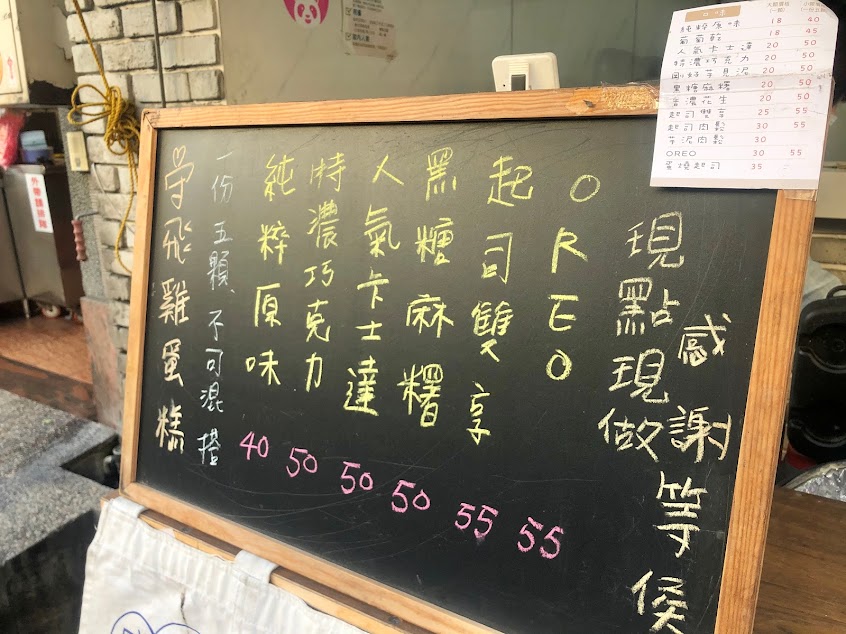 守飛雞蛋糕
一份五顆、不可混搭
純粹原味 40
特濃巧克力 50
人氣卡士達 50
黑糖麻糬 50
起司雙享 55
OREO 55
現點現做
感謝等候
口味
純粹原味 18 40
葡萄乾 18 45
人氣卡士達 20 50
特濃巧克力 20 50
剛好芋見泥 20 50
黑糖麻糬 20 50
香濃花生 20 50
起司雙享 25 55
起司肉鬆 30 55
芋泥肉鬆 30
OREO 30 55
蛋燒起司 35
外帶請排隊